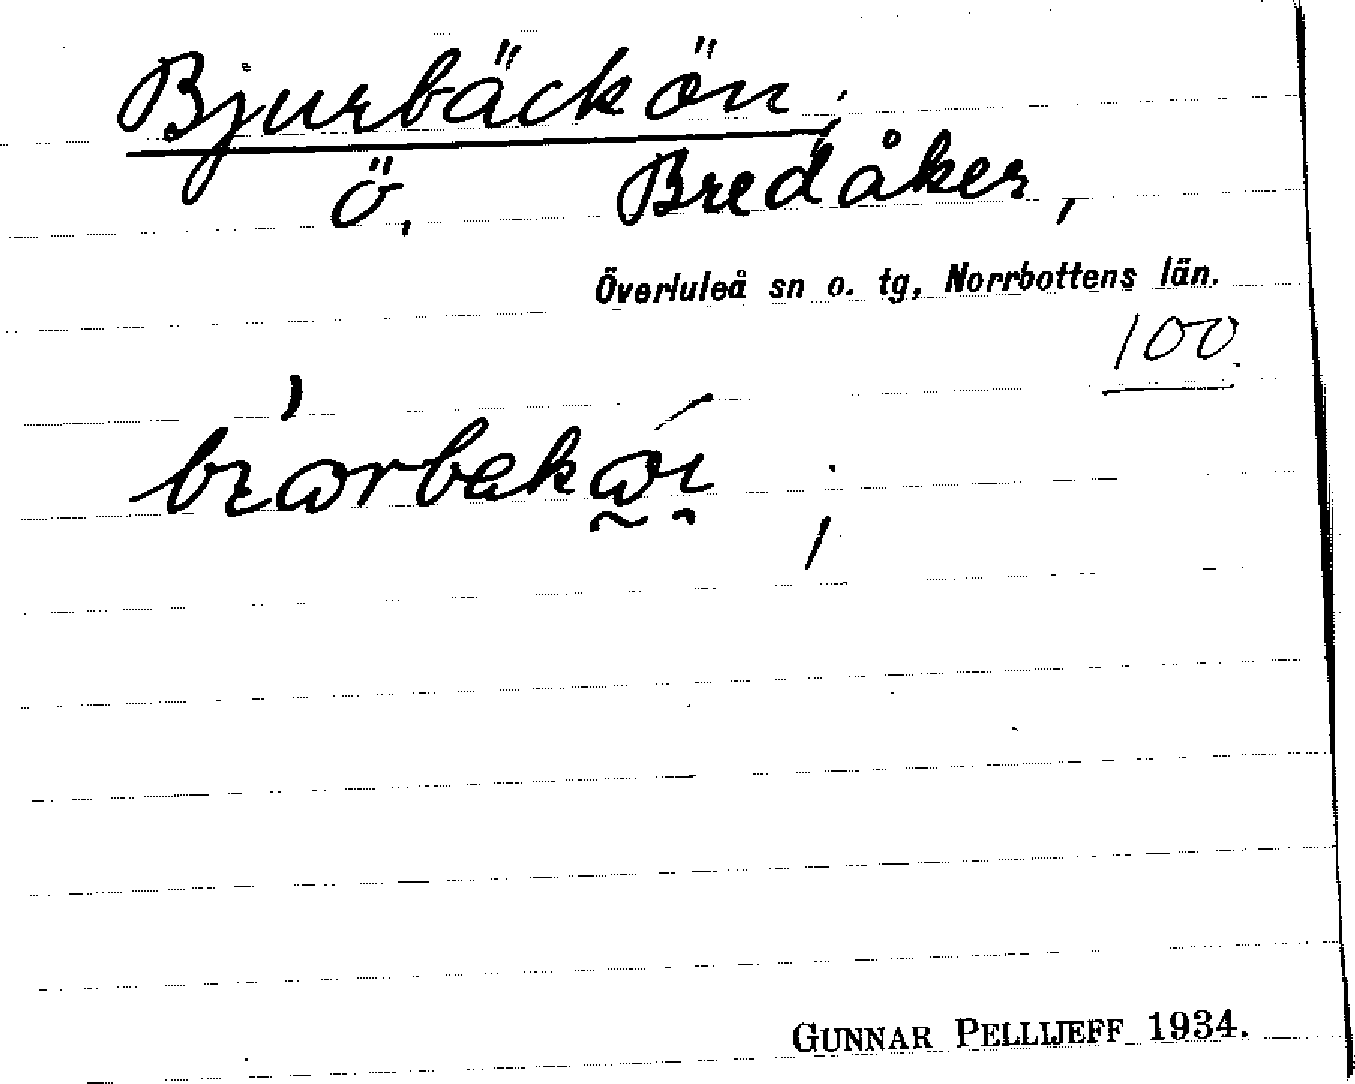 Bjurbäckön,
ö, Bredåker,
Överluleå sn o. tg, Norrbottens län.
100
GUNNAR PELLIJEFF 1934.